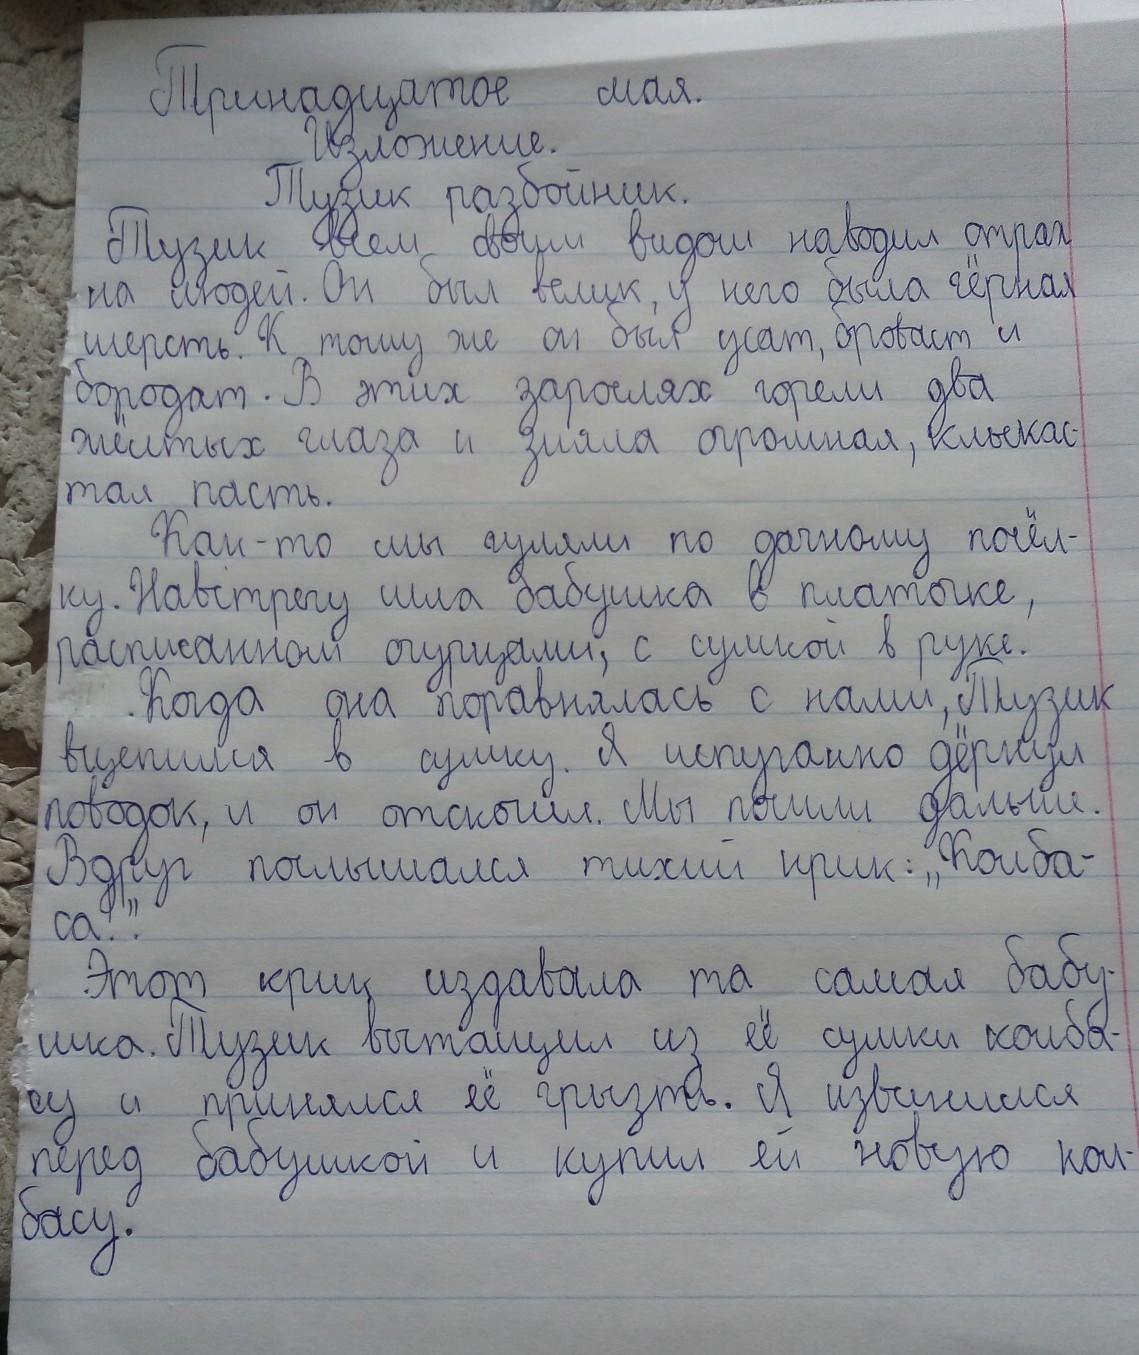 Тринадцатое мая.
Изложение.
Тузик разбойник.
Тузик всем своим видом наводил страх
на людей. Он был велик, у него была чёрная
шерсть. К тому же он был усат, броваст и
бородат. В этих зарослях горели два
жёлтых глаза и зияла огромная, клыкас-
тая пасть.
Как-то мы гуляли по дачному посёл-
ку. Навстречу шла бабушка в платочке,
расписанном огурцами, с сумкой в руке.
Когда она поравнялась с нами, Тузик
вцепился в сумку. Я испуганно дёрнул
поводок, и он отскочил. Мы пошли дальше.
Вдруг послышался тихий крик: „Колба-
са!".
Этот крик издавала та самая бабу-
шка. Тузик вытащил из её сумки колба-
су и принялся её грызть. Я извинился
перед бабушкой и купил ей новую кол-
басу.